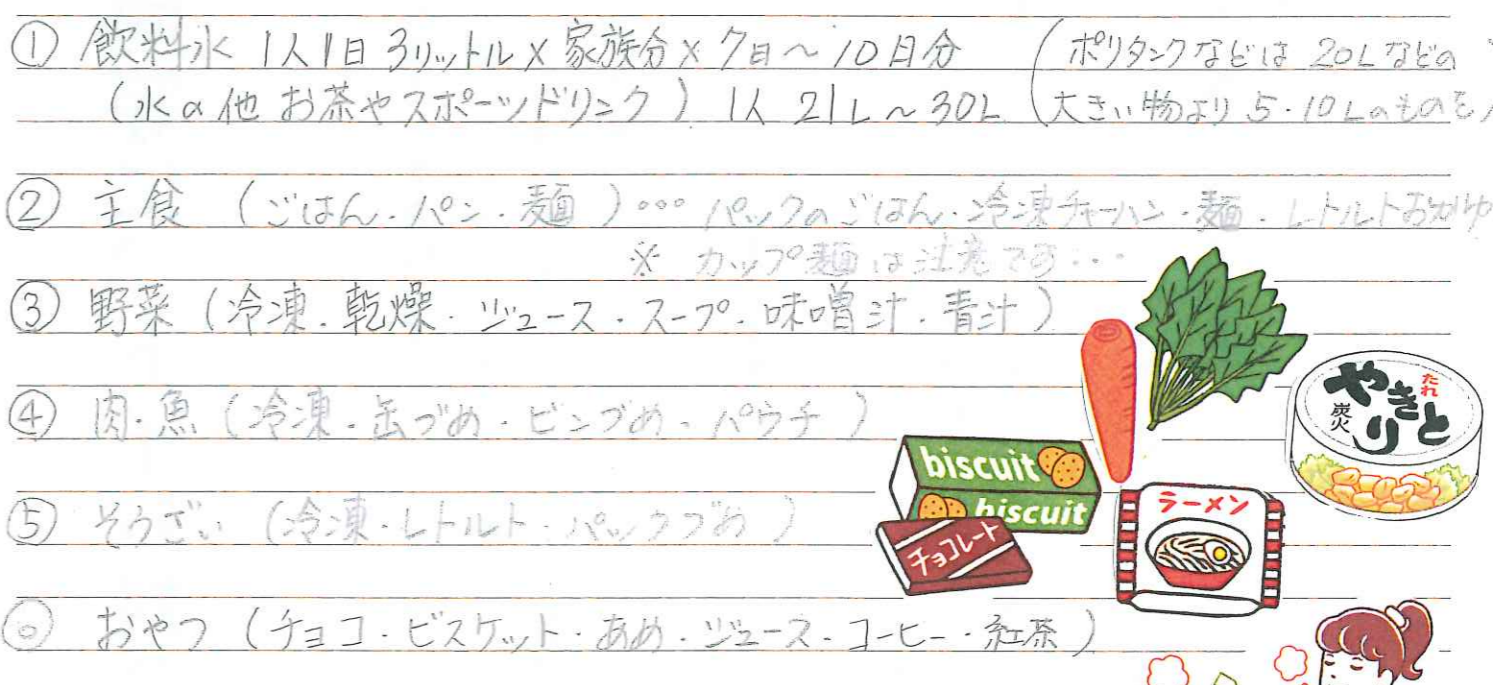 ① 飲料水 1人1日 3リットル×家族分×7日～10日分 (ポリタンクなどは 20Lなどの
(水の他 お茶やスポーツドリンク) 1人 21L～30L (大きい物より 5・10Lのものを
② 主食 (ごはん・パン・麺)°°° パックのごはん・冷凍チャーハン・麺・レトルトおかゆ
※ カップ麺は注意です・・・
③ 野菜 (冷凍・乾燥・ジュース・スープ・味噌汁・青汁)
④ 肉・魚 (冷凍・缶づめ・ビンづめ・パウチ)
⑤ そうざい (冷凍・レトルト・パックづめ)
◎ おやつ (チョコ・ビスケット・あめ・ジュース・コーヒー・紅茶)
たれ
やきとり
炭火
biscuit
biscuit
チョコレート
ラーメン